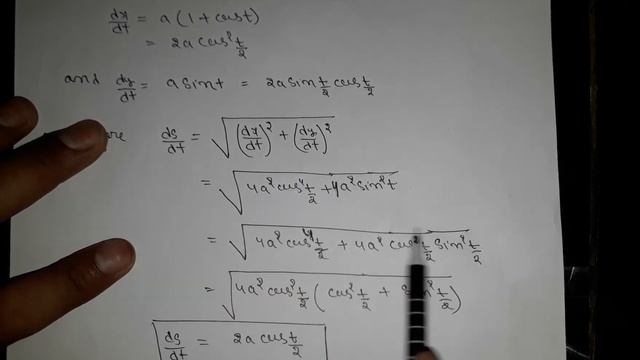 dx/dt = a (1 + cost)
= 2a cos²t/2
and dy/dt = a sint = 2a sin t/2 cos t/2
ds/dt = √((dx/dt)² + (dy/dt)²)
= √(4a² cos⁴ t/2 + 4a² sin² t)
= √(4a² cos⁴ t/2 + 4a² cos² t/2 sin² t/2)
= √(4a² cos² t/2 (cos² t/2 + sin² t/2))
ds/dt = 2a cos t/2